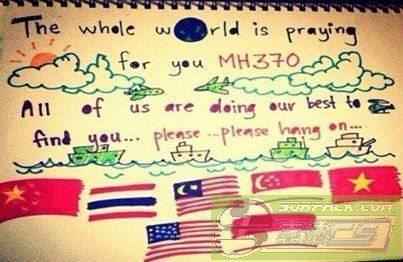 The whole world is praying
for you MH370
All of us are doing our best to
find you... please ...please hang on...
SURPACK.COM